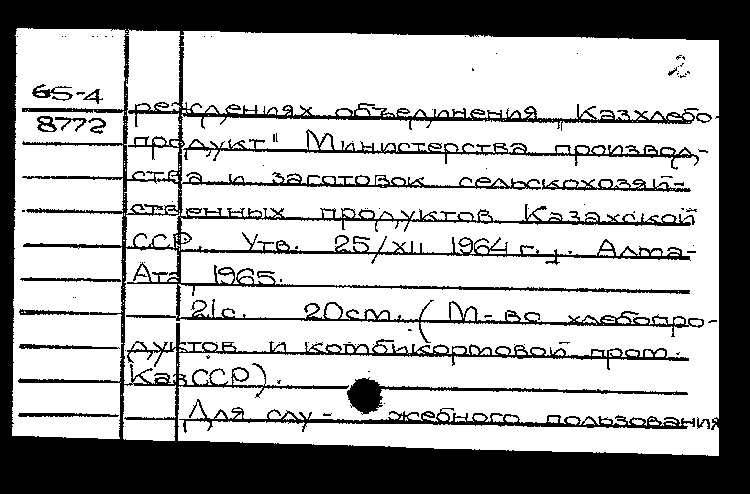 2
65-4
8772
реждениях объединения „Казхлебо-
продукт" Министерства производ-
ства и заготовок сельскохозяй-
ственных продуктов Казахской
ССР. Утв. 25/XII 1964 г. Алма-
Ата 1965.
21с. 20см. (М-во хлебопро-
дуктов и комбикормовой пром.
КазССР).
Для слу- жебного пользования